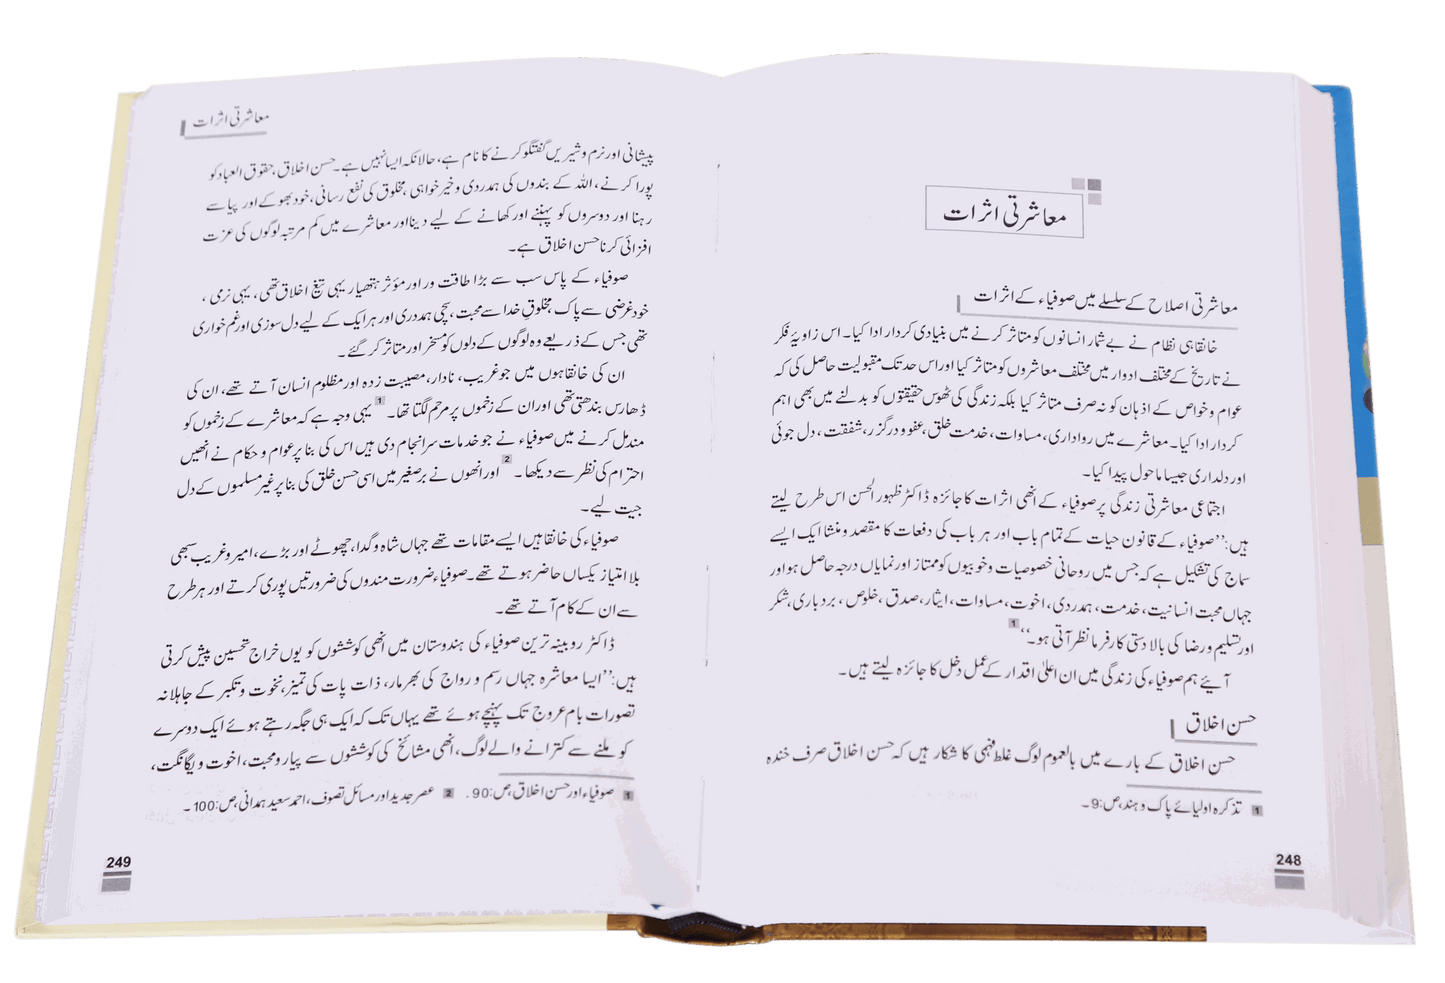 معاشرتی اثرات
معاشرتی اصلاح کے سلسلے میں صوفیاء کے اثرات
خانقاہی نظام نے بے شمار انسانوں کو متاثر کرنے میں بنیادی کردار ادا کیا۔ اس زاویۂ فکر
نے تاریخ کے مختلف ادوار میں مختلف معاشروں کو متاثر کیا اور اس حد تک مقبولیت حاصل کی کہ
عوام و خواص کے اذہان کو نہ صرف متاثر کیا بلکہ زندگی کی ٹھوس حقیقتوں کو بدلنے میں بھی اہم
کردار ادا کیا۔ معاشرے میں رواداری، مساوات، خدمت خلق، عفو و درگزر، شفقت، دل جوئی
اور دلداری جیسا ماحول پیدا کیا۔
اجتماعی معاشرتی زندگی پر صوفیاء کے انھی اثرات کا جائزہ ڈاکٹر ظہور الحسن اس طرح لیتے
ہیں: ’’صوفیاء کے قانون حیات کے تمام باب اور ہر باب کی دفعات کا مقصد و منشا ایک ایسے
سماج کی تشکیل ہے کہ جس میں روحانی خصوصیات و خوبیوں کو ممتاز اور نمایاں درجہ حاصل ہو اور
جہاں محبت انسانیت، خدمت، ہمدردی، اخوت، مساوات، ایثار، صدق، خلوص، بردباری، شکر
اور تسلیم و رضا کی بالادستی کارفرما نظر آتی ہو۔‘‘ 1
آیئے ہم صوفیاء کی زندگی میں ان اعلیٰ اقدار کے عمل دخل کا جائزہ لیتے ہیں۔
حسن اخلاق
حسن اخلاق کے بارے میں بالعموم لوگ غلط فہمی کا شکار ہیں کہ حسن اخلاق صرف خندہ
1 تذکرہ اولیائے پاک و ہند، ص: 9۔
248
معاشرتی اثرات
پیشانی اور نرم و شیریں گفتگو کرنے کا نام ہے، حالانکہ ایسا نہیں ہے۔ حسن اخلاق، حقوق العباد کو
پورا کرنے، اللہ کے بندوں کی ہمدردی و خیر خواہی مخلوق کی نفع رسانی، خود بھوکے اور پیاسے
رہنا اور دوسروں کو پہننے اور کھانے کے لیے دینا اور معاشرے میں کم مرتبہ لوگوں کی عزت
افزائی کرنا حسن اخلاق ہے۔
صوفیاء کے پاس سب سے بڑا طاقت ور اور مؤثر ہتھیار یہی تیغ اخلاق تھی، یہی نرمی،
خود غرضی سے پاک مخلوقِ خدا سے محبت، سچی ہمدردی اور ہر ایک کے لیے دل سوزی اور غم خواری
تھی جس کے ذریعے وہ لوگوں کے دلوں کو مسخر اور متاثر کر گئے۔
ان کی خانقاہوں میں جو غریب، نادار، مصیبت زدہ اور مظلوم انسان آتے تھے، ان کی
ڈھارس بندھتی تھی اور ان کے زخموں پر مرہم لگتا تھا۔ 1 یہی وجہ ہے کہ معاشرے کے زخموں کو
مندمل کرنے میں صوفیاء نے جو خدمات سرانجام دی ہیں اس کی بنا پر عوام و حکام نے انھیں
احترام کی نظر سے دیکھا۔ 2 اور انھوں نے برصغیر میں اسی حسن خلق کی بنا پر غیر مسلموں کے دل
جیت لیے۔
صوفیاء کی خانقاہیں ایسے مقامات تھے جہاں شاہ و گدا، چھوٹے اور بڑے، امیر و غریب سبھی
بلا امتیاز یکساں حاضر ہوتے تھے۔ صوفیاء ضرورت مندوں کی ضرورتیں پوری کرتے اور ہر طرح
سے ان کے کام آتے تھے۔
ڈاکٹر روبینہ ترین صوفیاء کی ہندوستان میں انھی کوششوں کو یوں خراج تحسین پیش کرتی
ہیں: ’’ایسا معاشرہ جہاں رسم و رواج کی بھرمار، ذات پات کی تمیز، نخوت و تکبر کے جاہلانہ
تصورات بام عروج تک پہنچے ہوئے تھے یہاں تک کہ ایک ہی جگہ رہتے ہوئے ایک دوسرے
کو ملنے سے کترانے والے لوگ، انھی مشائخ کی کوششوں سے پیار و محبت، اخوت و یگانگت،
1 صوفیاء اور حسن اخلاق، ص: 90۔ 2 عصر جدید اور مسائل تصوف، احمد سعید ہمدانی، ص: 100۔
249